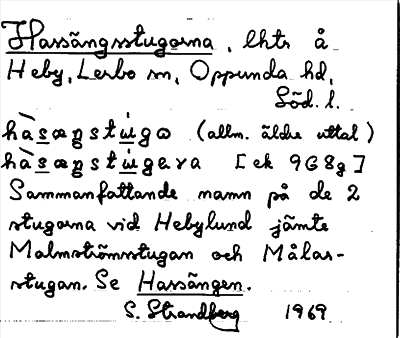 Hassängsstugorna, lhtr å
Heby, Lerbo sn, Oppunda hd,
Söd. l.
hàsæŋstúgo (allm. äldre uttal)
hàsæŋstúgɐra [ek 9G8g]
Sammanfattande namn på de 2
stugorna vid Hebylund jämte
Malmströmsstugan och Målar-
stugan. Se Hassängen.
S. Strandberg 1969